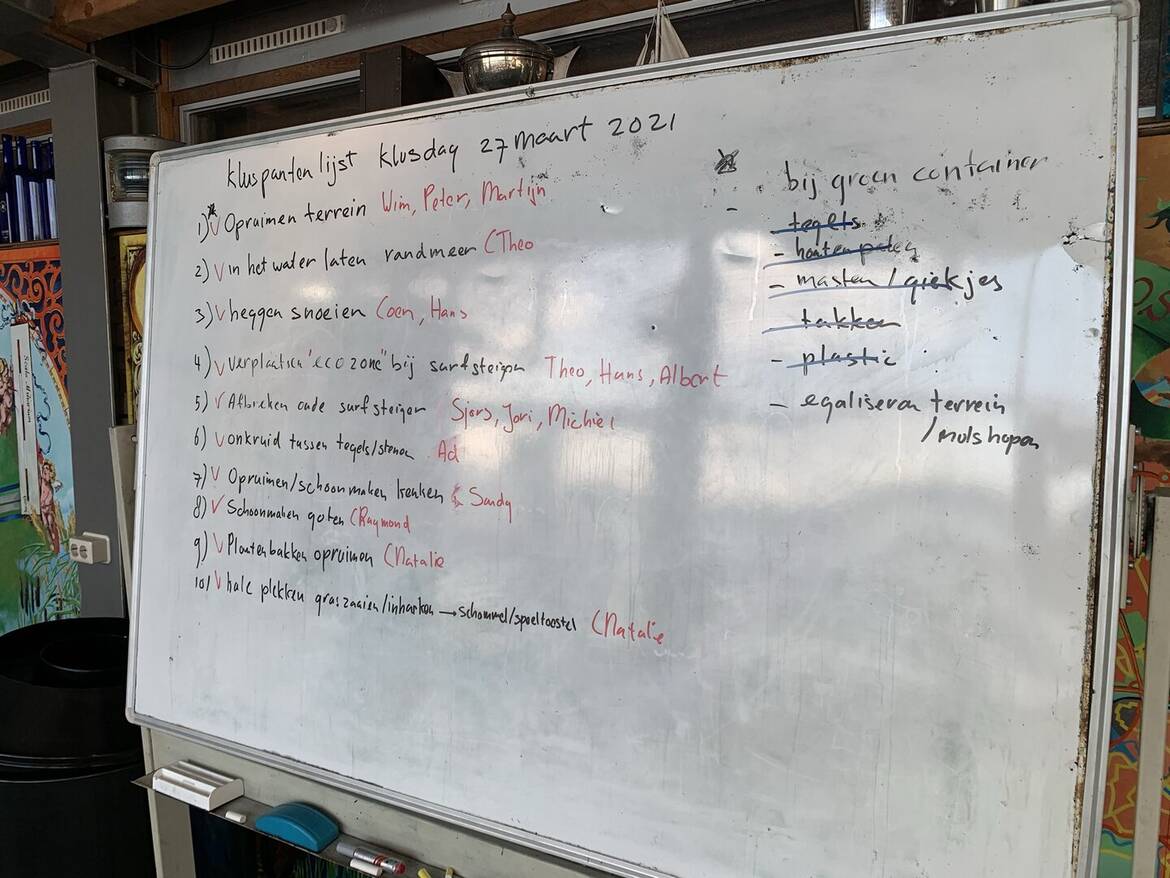 kluspanten lijst klusdag 27 maart 2021
1) v Opruimen terrein Wim, Peter, Martijn
2) v in het water laten randmeer (Theo
3) v heggen snoeien Coen, Hans
4) v verplaatsen "ecozone" bij surfsteiger Theo, Hans, Albert
5) v Afbreken oude surfsteiger Sjors, Jori, Michiel
6) v onkruid tussen tegels/stenen Ad
7) v Opruimen/schoonmaken keuken ( Sandy
8) v Schoonmaken goten (Raymond
9) v Plantenbakken opruimen (Natalie
10) v kale plekken graszaaien/inharken → schommel/speeltoestel (Natalie
bij groen container
- tegels
- houten palen
- masten/giekjes
- takken
- plastic
- egaliseren terrein
/molshopen